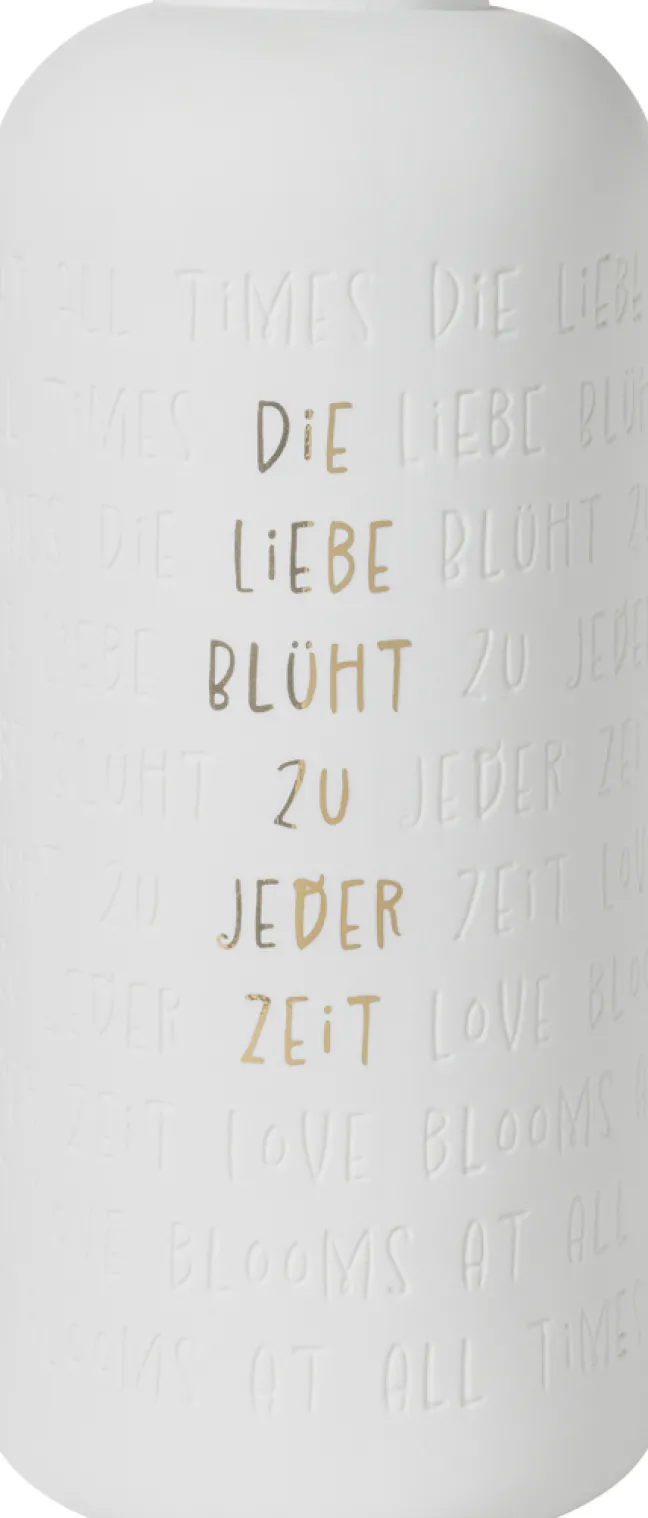 ALL TiMES DiE LiEBE
TiMES DiE LiEBE BLÜHT
DiE LiEBE BLÜHT ZU
LiEBE BLÜHT ZU JEDER
BLÜHT ZU JEDER ZEiT
ZU JEDER ZEiT LoVE
JEDER ZEiT LoVE BLooMS
ZEiT LoVE BLooMS
BLooMS AT ALL
BLooMS AT ALL TiMES